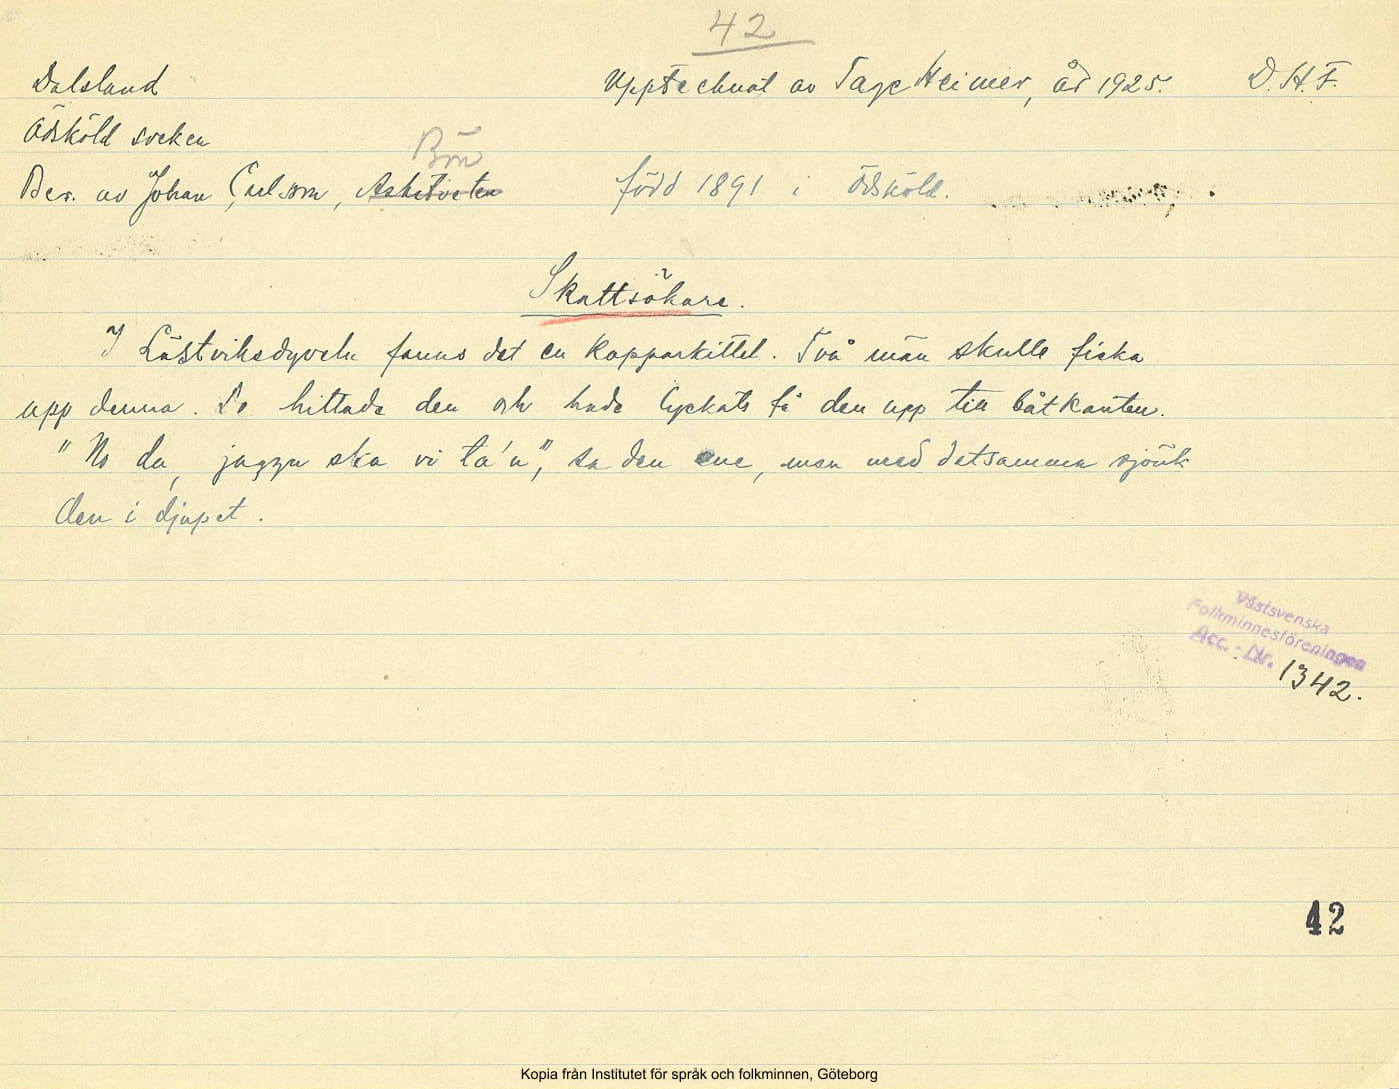 42
Dalsland Upptecknat av Tage Heimer, år 1925. D.H.F.
Ödsköld socken
Bön
Ber. av Johan Carlsson, född 1891 i Ödsköld.
Skattsökare.
I fanns det en kopparkittel. Två män skulle fiska
upp denna. De hittade den och hade lyckats få den upp till båtkanten.
" No da, jaggu ska vi ta'n", sa den ene, men med detsamma sjönk
den i djupet.
Västsvenska
Folkminnesföreningen
Acc. - Nr. 1342.
42
Kopia från Institutet för språk och folkminnen, Göteborg